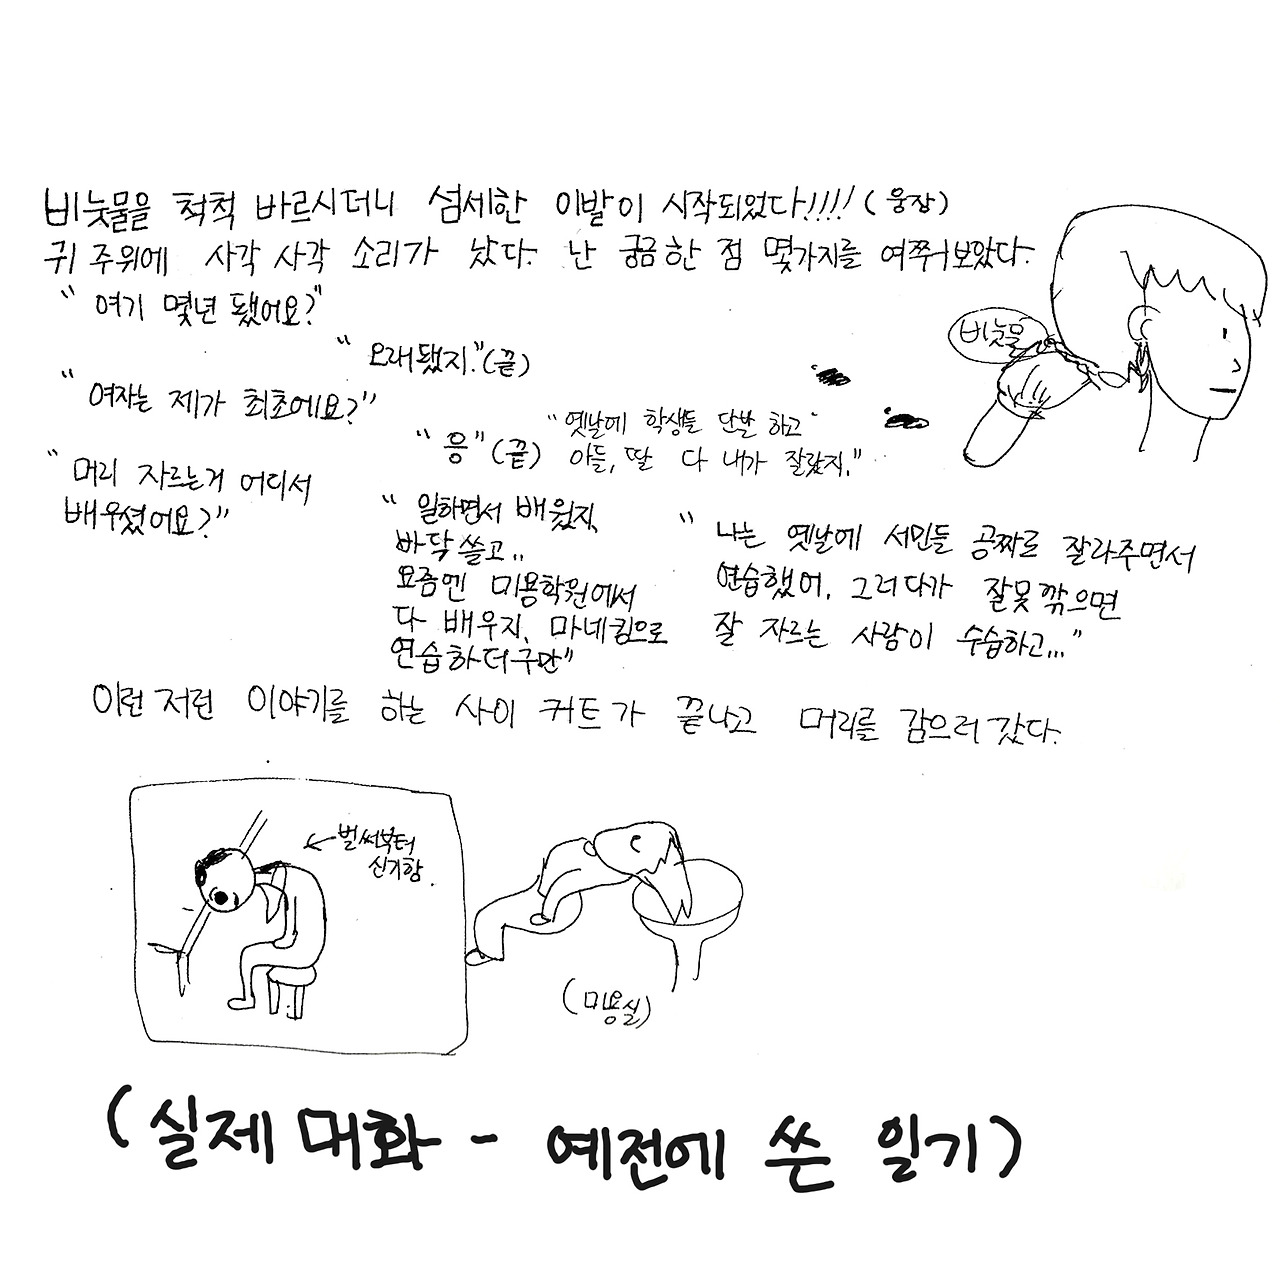 비눗물을 척척 바르시더니 섬세한 이발이 시작되었다!!!! (웅장)
귀 주위에 사각 사각 소리가 났다. 난 궁금한 점 몇가지를 여쭈어보았다.
" 여기 몇년 됐어요?"
" 오래됐지."(끝)
비눗물
" 여자는 제가 최초에요?"
" 응" (끝)
"옛날에 학생들 단발 하고
아들, 딸 다 내가 잘랐지."
" 머리 자르는거 어디서
배우셨어요?"
" 일하면서 배웠지,
바닥 쓸고..
요즘엔 미용학원에서
다 배우지, 마네킹으로
연습하더구만"
" 나는 옛날에 서민들 공짜로 잘라주면서
연습했어, 그러다가 잘못 깎으면
잘 자르는 사람이 수습하고..."
이런 저런 이야기를 하는 사이 커트가 끝나고 머리를 감으러 갔다.
← 벌써부터
신기함.
(미용실)
(실제 대화 - 예전에 쓴 일기)